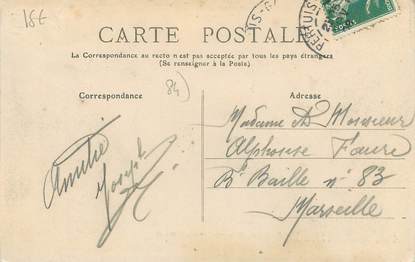 15€
CARTE POSTALE
La Correspondance au recto n'est pas acceptée par tous les pays étrangers
(Se renseigner à la Poste)
Correspondance
(84)
Adresse
Amitié
Joseph
Madame & Monsieur
Alphonse Faure
Bd Baille n° 83
Marseille
PERTUIS